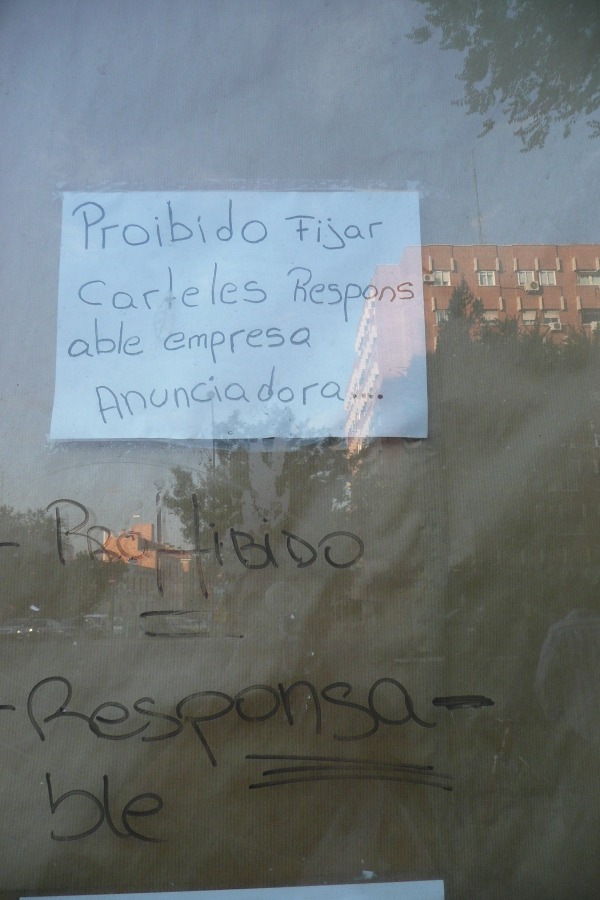 Proibido Fijar
Carteles Respons
able empresa
Anunciadora....
- PROHIBIDO
- Responsa-
ble